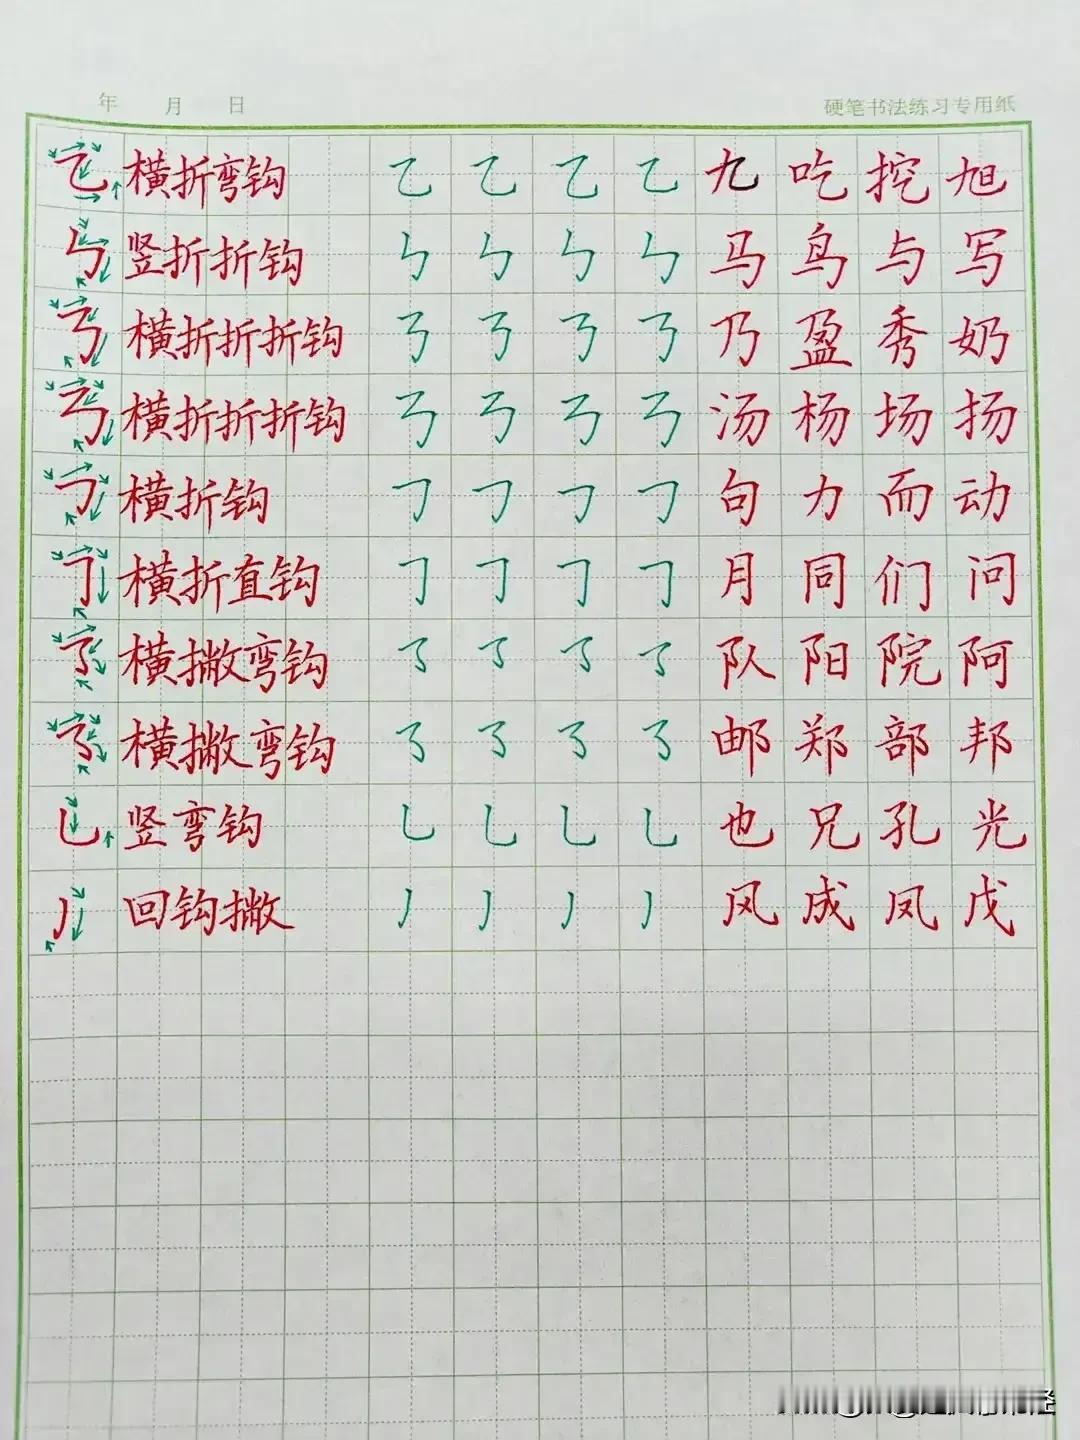 年 月 日 硬笔书法练习专用纸
乙 横折弯钩 乙 乙 乙 乙 九 吃 挖 旭
ㄣ 竖折折钩 ㄣ ㄣ ㄣ ㄣ 马 鸟 与 写
𠄎 横折折折钩 𠄎 𠄎 𠄎 𠄎 乃 盈 秀 奶
𠄎 横折折折钩 𠄎 𠄎 𠄎 𠄎 汤 杨 场 扬
㇆ 横折钩 ㇆ ㇆ ㇆ ㇆ 句 力 而 动
㇆ 横折直钩 ㇆ ㇆ ㇆ ㇆ 月 同 们 问
㇌ 横撇弯钩 ㇌ ㇌ ㇌ ㇌ 队 阳 院 阿
㇌ 横撇弯钩 ㇌ ㇌ ㇌ ㇌ 邮 郑 部 邦
乚 竖弯钩 乚 乚 乚 乚 也 兄 孔 光
丿 回钩撇 丿 丿 丿 丿 风 成 凤 戊